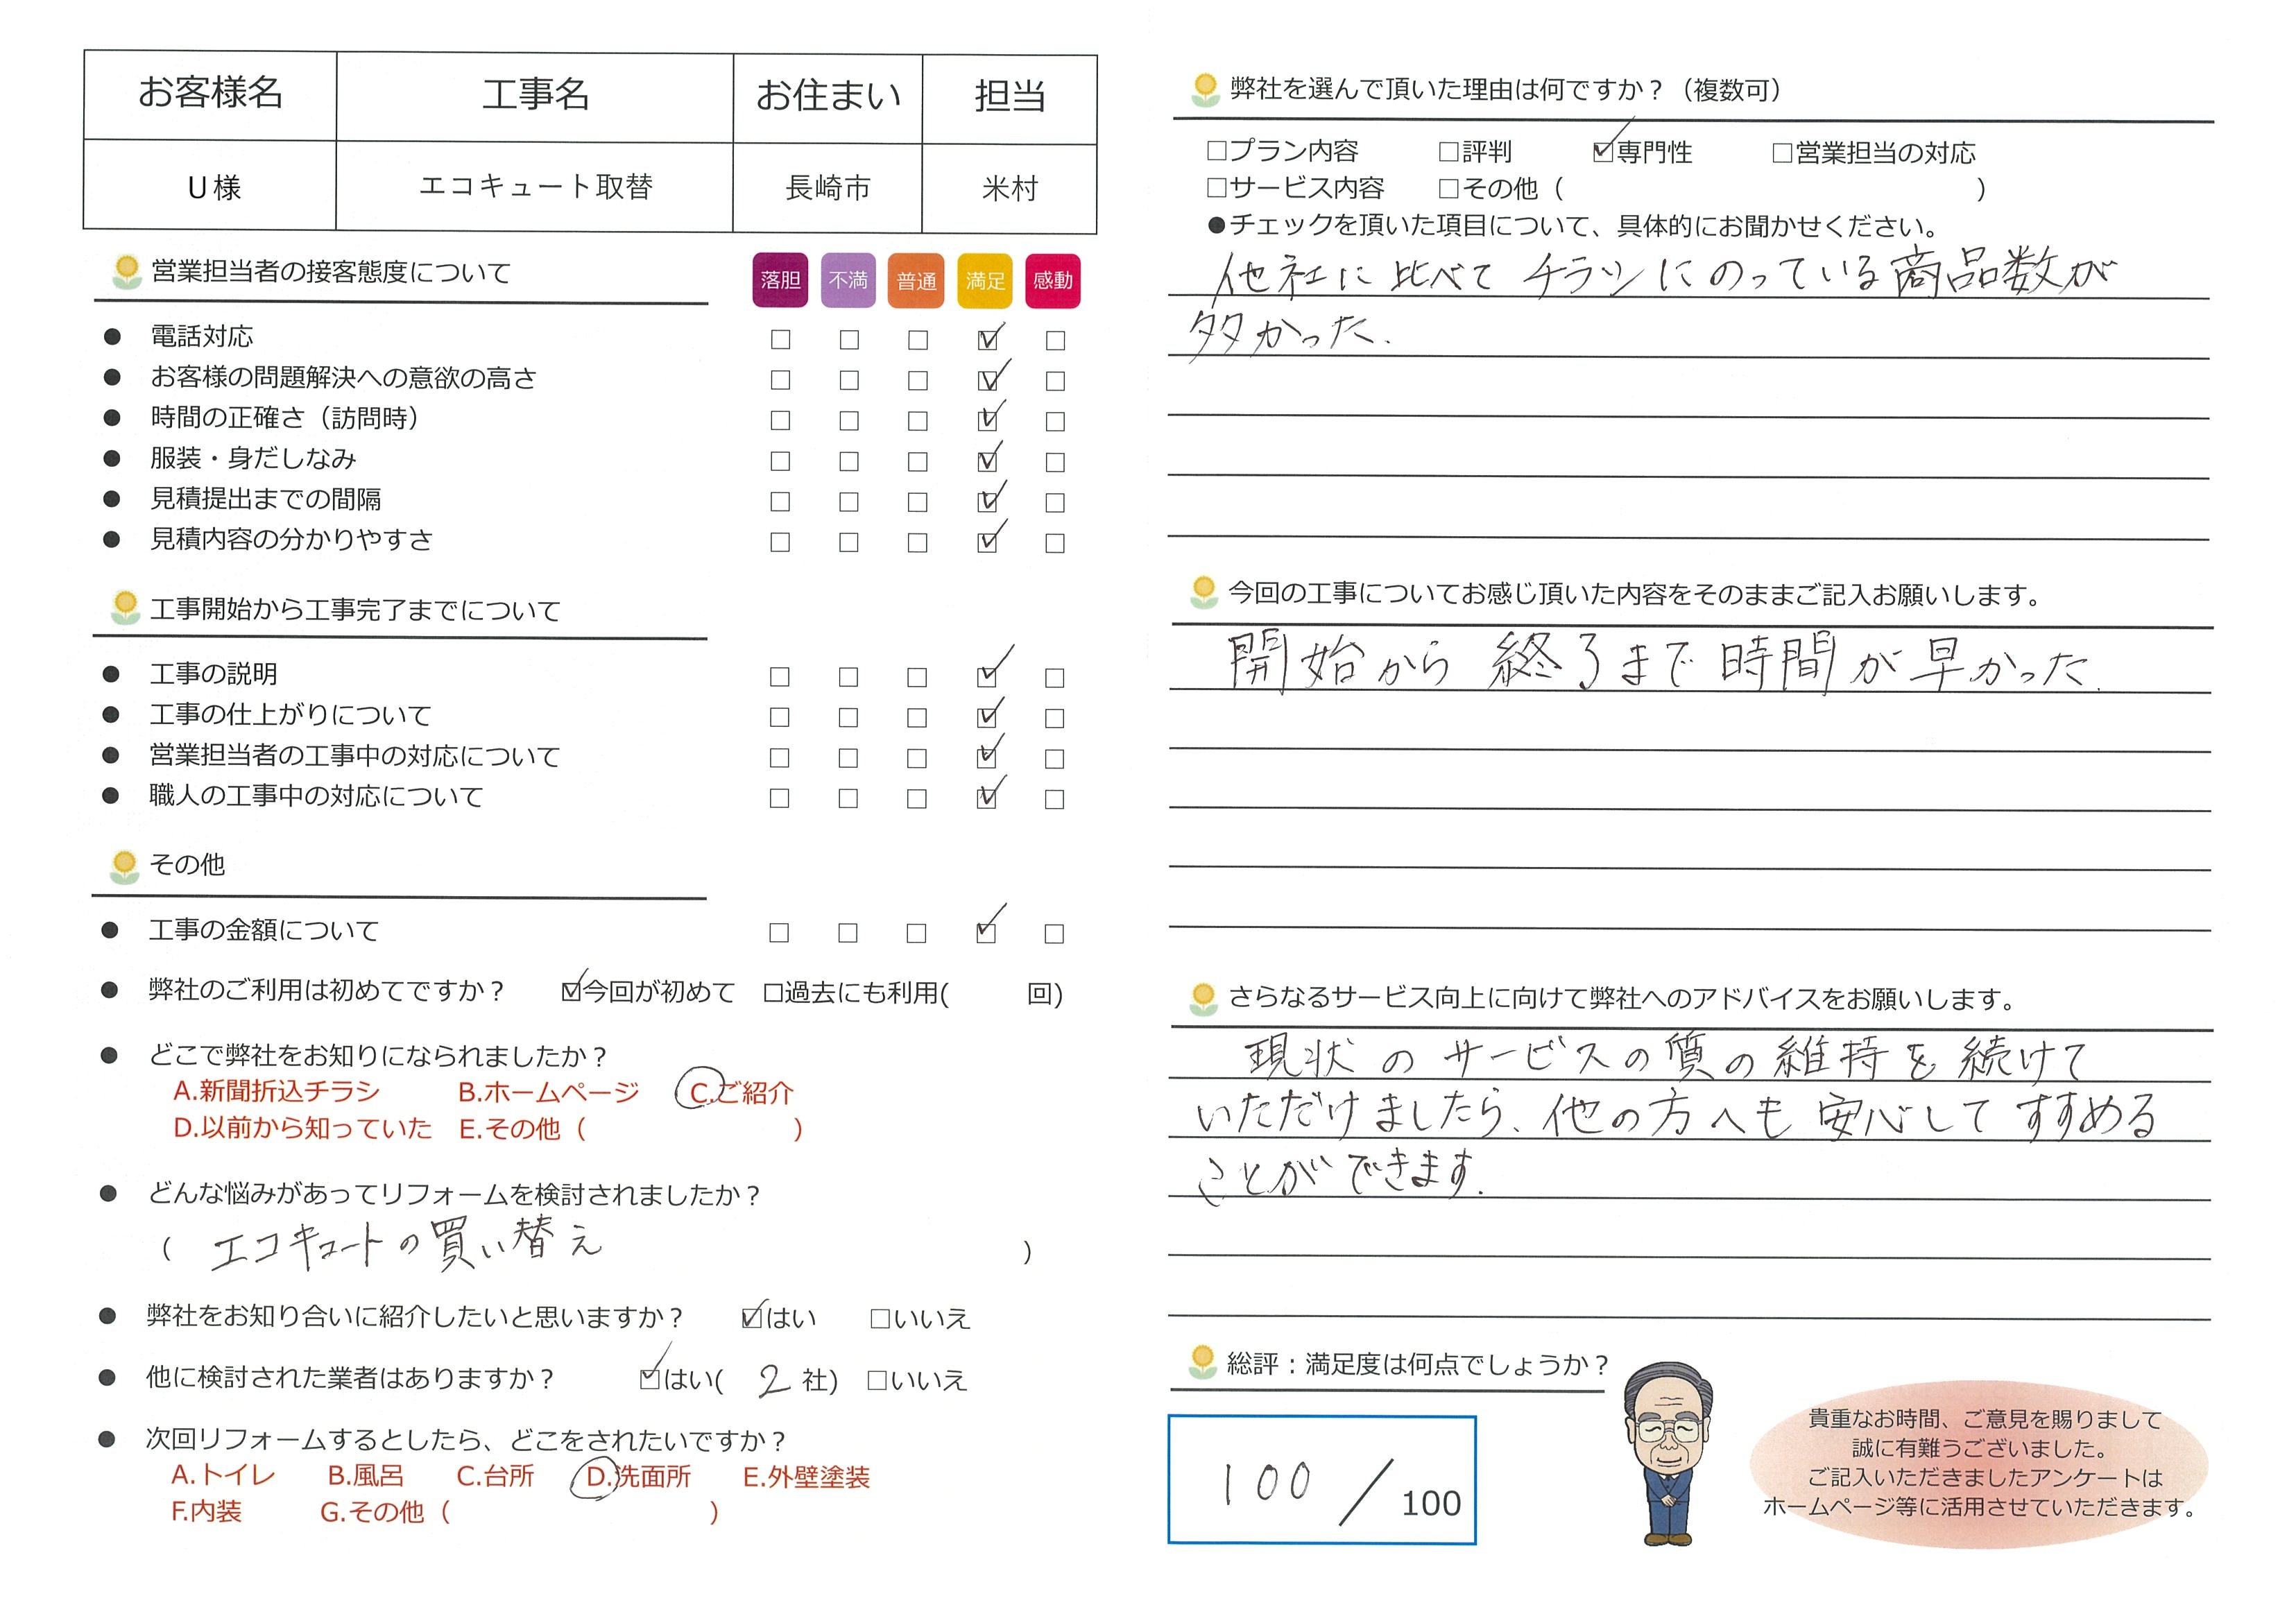 お客様名 工事名 お住まい 担当
U様 エコキュート取替 長崎市 米村
営業担当者の接客態度について 落胆 不満 普通 満足 感動
● 電話対応 □ □ □ ☑ □
● お客様の問題解決への意欲の高さ □ □ □ ☑ □
● 時間の正確さ（訪問時） □ □ □ ☑ □
● 服装・身だしなみ □ □ □ ☑ □
● 見積提出までの間隔 □ □ □ ☑ □
● 見積内容の分かりやすさ □ □ □ ☑ □
工事開始から工事完了までについて
● 工事の説明 □ □ □ ☑ □
● 工事の仕上がりについて □ □ □ ☑ □
● 営業担当者の工事中の対応について □ □ □ ☑ □
● 職人の工事中の対応について □ □ □ ☑ □
その他
● 工事の金額について □ □ □ ☑ □
● 弊社のご利用は初めてですか？ ☑今回が初めて □過去にも利用( 回)
● どこで弊社をお知りになられましたか？
A.新聞折込チラシ B.ホームページ C.ご紹介
D.以前から知っていた E.その他（ ）
● どんな悩みがあってリフォームを検討されましたか？
（ エコキュートの買い替え ）
● 弊社をお知り合いに紹介したいと思いますか？ ☑はい □いいえ
● 他に検討された業者はありますか？ ☑はい( 2 社) □いいえ
● 次回リフォームするとしたら、どこをされたいですか？
A.トイレ B.風呂 C.台所 D.洗面所 E.外壁塗装
F.内装 G.その他（ ）
弊社を選んで頂いた理由は何ですか？（複数可）
□プラン内容 □評判 ☑専門性 □営業担当の対応
□サービス内容 □その他（ ）
●チェックを頂いた項目について、具体的にお聞かせください。
他社に比べてチラシにのっている商品数が
多かった.
今回の工事についてお感じ頂いた内容をそのままご記入お願いします。
開始から終了まで時間が早かった.
さらなるサービス向上に向けて弊社へのアドバイスをお願いします。
現状のサービスの質の維持を続けて
いただけましたら、他の方へも安心してすすめる
ことができます.
総評：満足度は何点でしょうか？
100 / 100
貴重なお時間、ご意見を賜りまして
誠に有難うございました。
ご記入いただきましたアンケートは
ホームページ等に活用させていただきます。